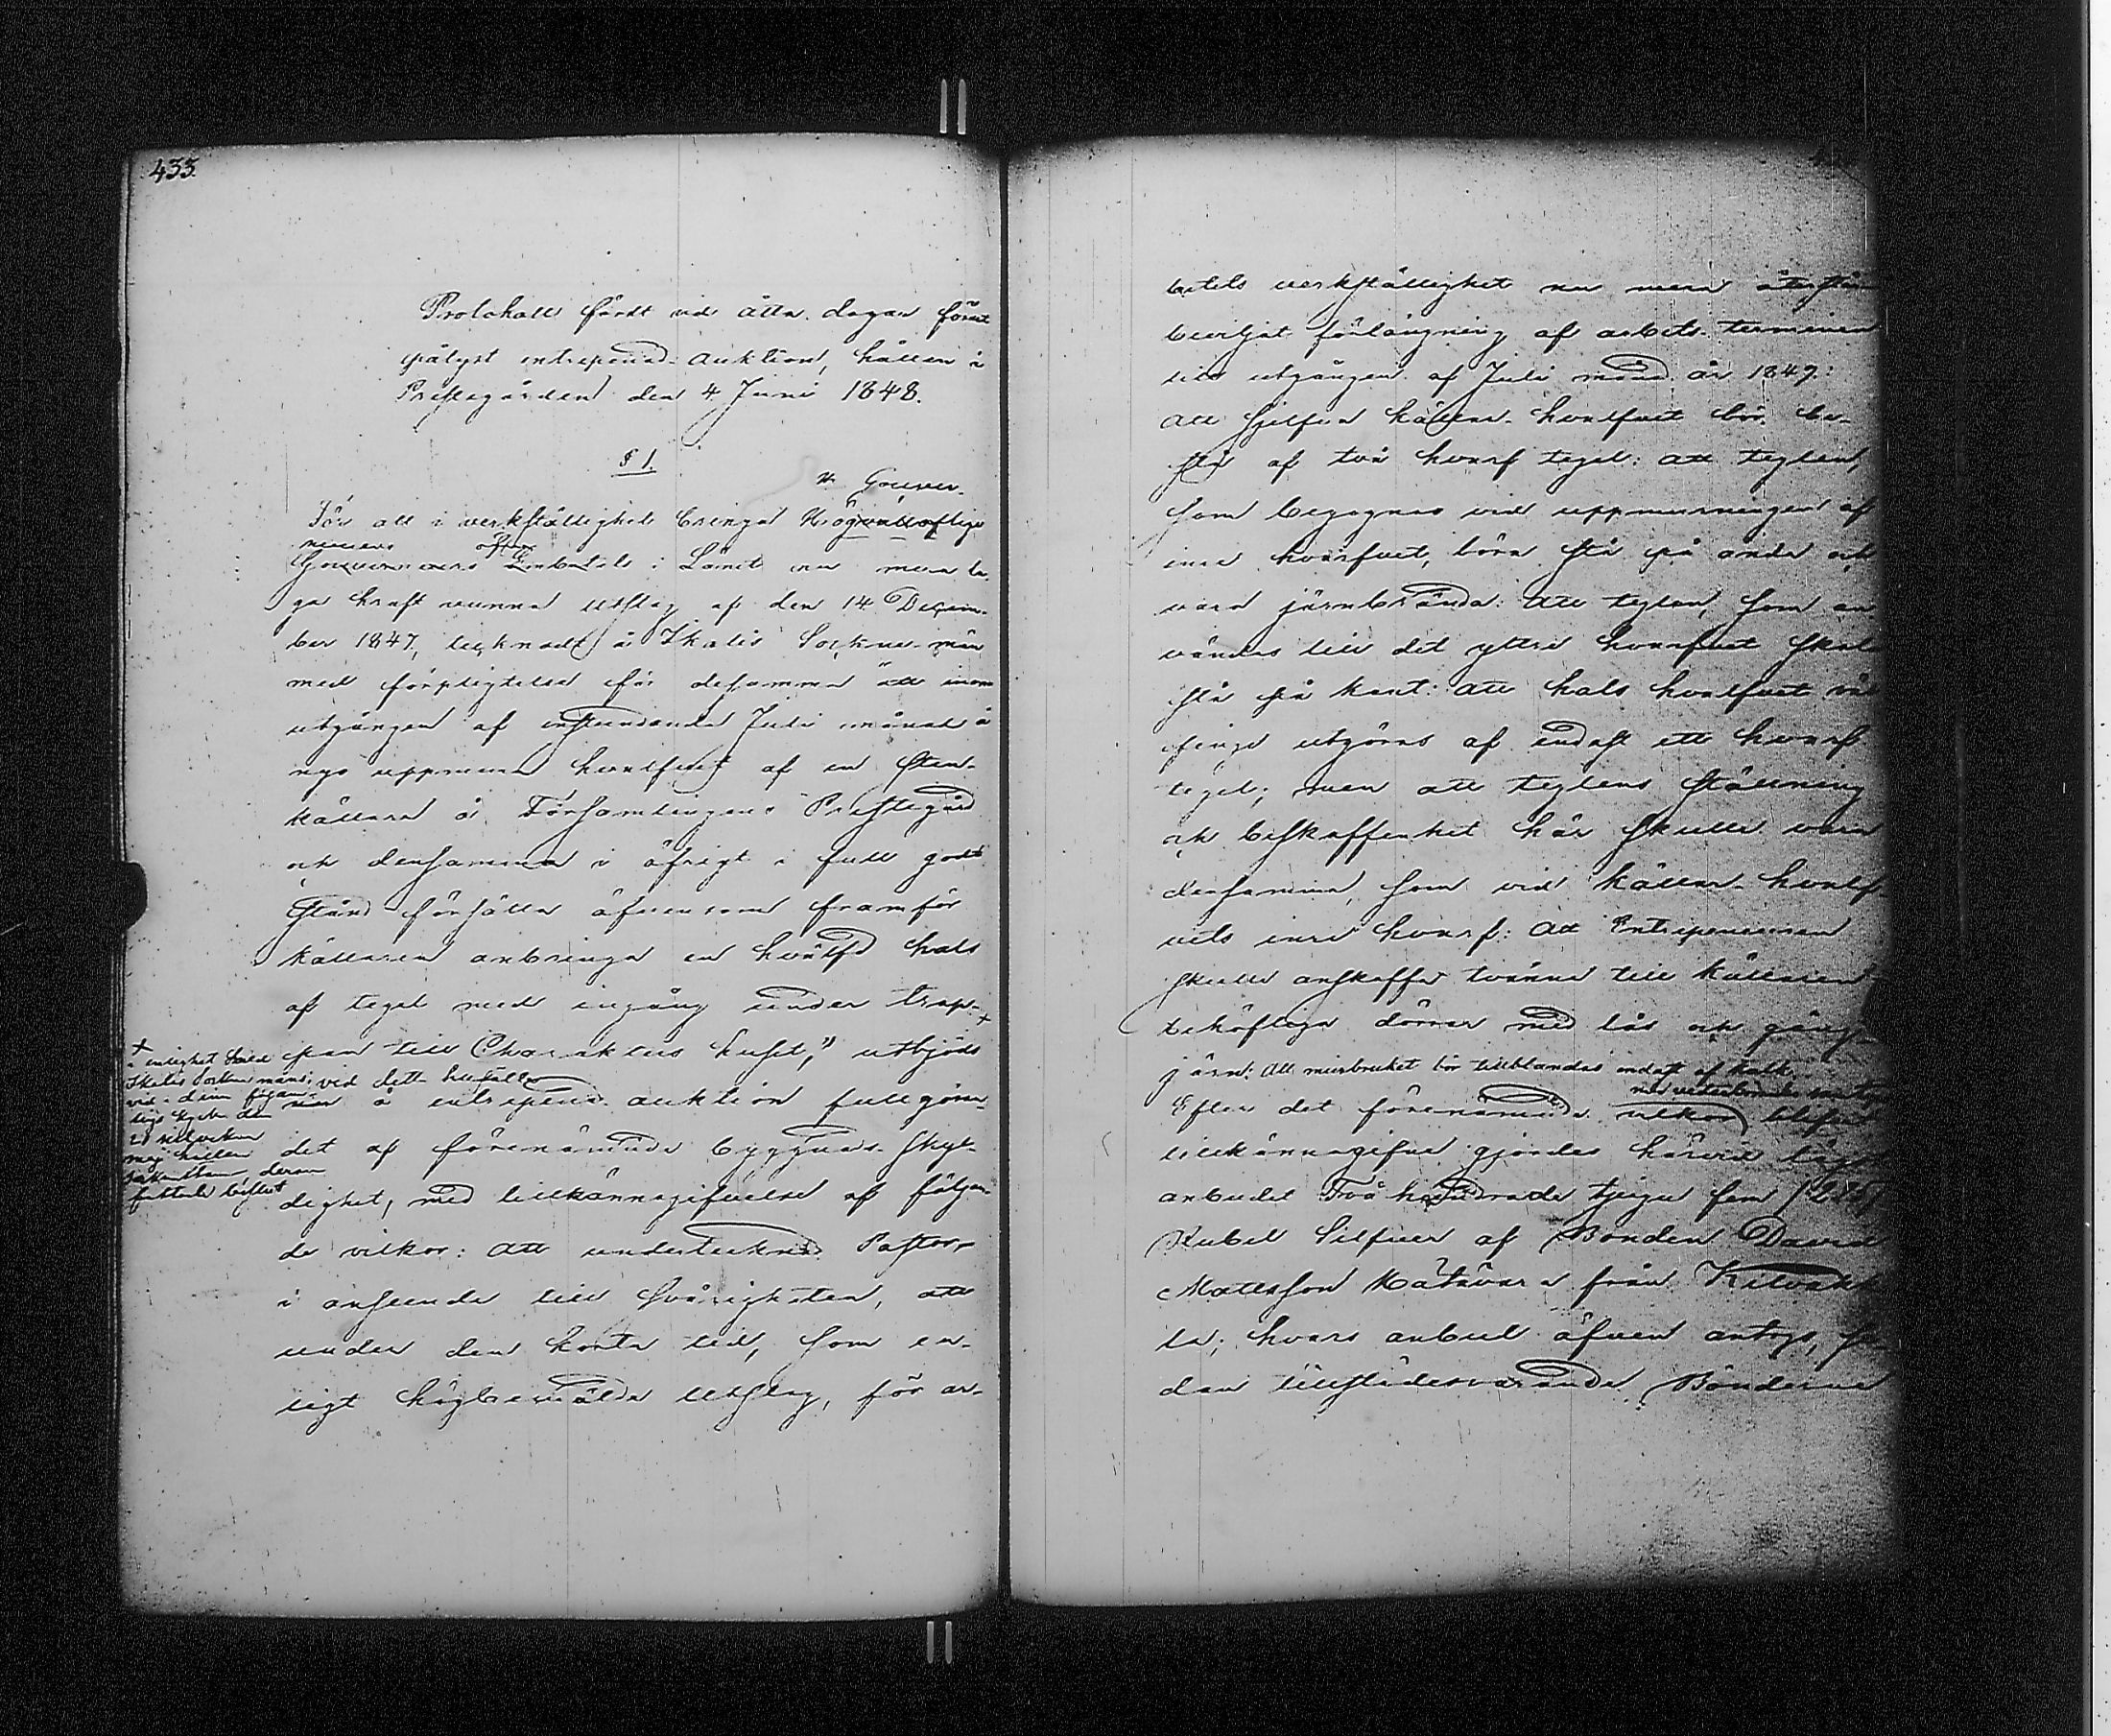 433.
Protokoll fördt vid åtta dagar förut
pålyst entrepenad-auktion, hållen å
Prestegården den 4 Juni 1848.
§ 1.
H. Gouver-
För att i verkställighet bringa Högvälloflige
neurens öfver
Gouverneurs Embetets i Länet nu mera la-
ga kraft vunna utslag af den 14 Decem-
ber 1847, tecknadt å Ikalis Sockne-män
med förpligtelse för desamma att inom
utgången af instundande Juli månad å
nyo uppmura hvalfvet af en sten-
källare å Församlingens Prestegård
och densamma i öfrigt i fullgodt
stånd försätta äfvensom framför
källaren anbringa en hvälfd hals
af tegel med ingång under trap-
pan till Charakters huset," utbjöds +
vid detta tillfälle
nu å entrepenad-auktion fullgöran-
det af förenämnde byggnads-skyl-
dighet, med tillkännagifvelse af följan-
de vilkor: att undertecknad Pastor,
i anseende till svårigheten, att
under den korta tid, som en-
ligt högbemälda Utslag, för ar-
+
i enlighet med
Ikalis Sockne mäns
vid den
lige
maj hållen
fattade beslut
betets verkställighet nu mera återstår
beviljat förlängning af arbets-terminen
till utgången af Juli månad år 1849:
att sjelfva källare-hvalfvet bör be-
stå af två hvarf tegel: att teglen,
som begagnas vid uppmurningen af
inre hvarfvet, böra stå på ända och
vara järnbrända: att teglen, som an-
vändas till det yttre hvarfvet skola
stå på kant: att hals hvalfvet väl
finge utgöras af endast ett hvarf
tegel; men att teglens ställning
och beskaffenhet här skulle vara
densamma, som vid källare-hvalf-
vets inre hvarf: att Entrepeneuren
skulle anskaffa tvänne till källaren
behöfliga dörrar med lås och gång-
järn: Att murbruket bör tillblandas endast af kalk.
Efter det förenämnde vilkor blifvit
tillkännagifne gjordes härvid lägsta
anbudet Två hundrade tjugu fem (225)
Rubel Silfver af Bonden David
Mattsson Matavara från Kilvakka-
la; hvars anbud äfven antogs, se-
dan tillstädesvarande Bönderne